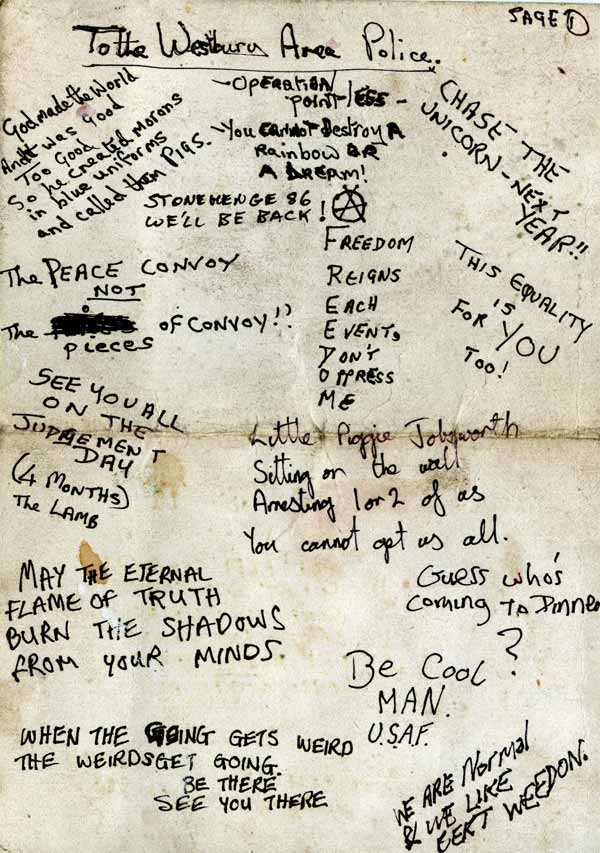 PAGE 1
To the Westbury Area Police.
God made the World
And it was Good
Too Good
So he created Morons
in blue uniforms
and called them PIGS.
- OPERATION
POINTLESS -
You cannot destroy A
Rainbow OR
A DREAM!
CHASE THE
UNICORN - NEXT
YEAR!!
STONEHENGE 86
WE'LL BE BACK! Ⓐ
FREEDOM
REIGNS
EACH
EVENT,
DON'T
OPPRESS
ME
The PEACE CONVOY
NOT
The OF CONVOY!?
pieces
THIS EQUALITY
IS
FOR YOU
TOO!
SEE YOU ALL
ON THE
JUDGEMENT
DAY
(4 MONTHS)
The LAMB
Little Piggie Jobsworth
Sitting on the wall
Arresting 1 or 2 of us
You cannot opt us all.
MAY THE ETERNAL
FLAME OF TRUTH
BURN THE SHADOWS
FROM YOUR MINDS.
Guess who's
Coming TO Dinner
?
Be Cool
MAN.
U.S.A.F.
WHEN THE GOING GETS WEIRD
THE WEIRDS GET GOING.
BE THERE
SEE YOU THERE
WE ARE Normal
& WE LIKE
BERT WEEDON.